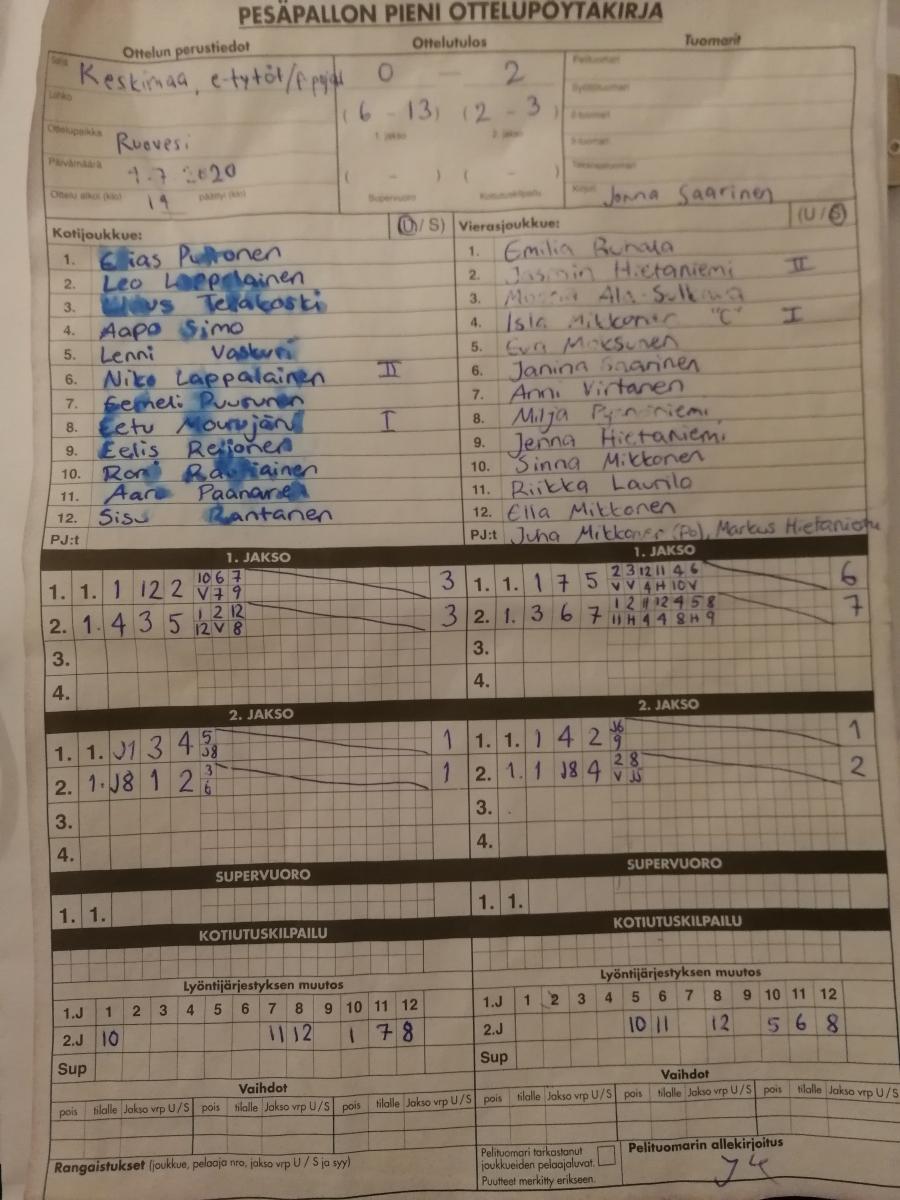 PESÄPALLON PIENI OTTELUPÖYTÄKIRJA
Ottelun perustiedot
Ottelutulos
Tuomarit
Sarja Keskimaa, e-tytöt/
0 – 2
Pelituomari
Lohko
(6 - 13) (2 - 3)
1. jakso 2. jakso
Ottelupaikka Ruovesi
Päivämäärä 7 2020
( - ) ( - )
Supervuoro Kotiutuskilpailu
Ottelu alkoi (klo) 19 päättyi (klo)
Kirjuri Jonna Saarinen
Kotijoukkue: (U/S)
1. Elias
2. Leo Lappalainen
3. Teräkoski
4. Aapo Simo
5. Lenni
6. Niko Lappalainen II
7. Eemeli Puurunen
8. Eetu I
9. Eelis Reijonen
10. Roni
11. Aaro Paananen
12. Sisu Rantanen
PJ:t
Vierasjoukkue: (U/S)
1. Emilia
2. Jasmin Hietaniemi II
3.
4. Isla Mikkonen "C" I
5. Eva
6. Janina Saarinen
7. Anni Virtanen
8. Milja
9. Jenna Hietaniemi
10. Sinna Mikkonen
11. Riikka Laurila
12. Ella Mikkonen
PJ:t Juha Mikkonen (Po), Markus Hietaniemi
1. JAKSO
1. 1. 1 12 2 10 6 7 3
V 7 9
2. 1. 4 3 5 1 2 12 3
12 V 8
3.
4.
1. JAKSO
1. 1. 1 7 5 2 3 12 11 4 6 6
V V 4 H 10 V
2. 1. 3 6 7 1 2 11 12 4 5 8 7
11 H 4 4 8 H 9
3.
4.
2. JAKSO
1. 1. J1 3 4 5 1
J8
2. 1. J8 1 2 3 1
6
3.
4.
2. JAKSO
1. 1. 1 4 2 J6 1
9
2. 1. 1 J8 4 2 8 2
V J5
3.
4.
SUPERVUORO
1. 1.
SUPERVUORO
1. 1.
KOTIUTUSKILPAILU
KOTIUTUSKILPAILU
Lyöntijärjestyksen muutos
1.J 1 2 3 4 5 6 7 8 9 10 11 12
2.J 10 11 12 1 7 8
Sup
Lyöntijärjestyksen muutos
1.J 1 2 3 4 5 6 7 8 9 10 11 12
2.J 10 11 12 5 6 8
Sup
Vaihdot
pois tilalle Jakso vrp U/S pois tilalle Jakso vrp U/S pois tilalle Jakso vrp U/S
Vaihdot
pois tilalle Jakso vrp U/S pois tilalle Jakso vrp U/S pois tilalle Jakso vrp U/S
Rangaistukset (joukkue, pelaaja nro, jakso vrp U / S ja syy)
Pelituomari tarkastanut
joukkueiden pelaajaluvat.
Puutteet merkitty erikseen.
Pelituomarin allekirjoitus